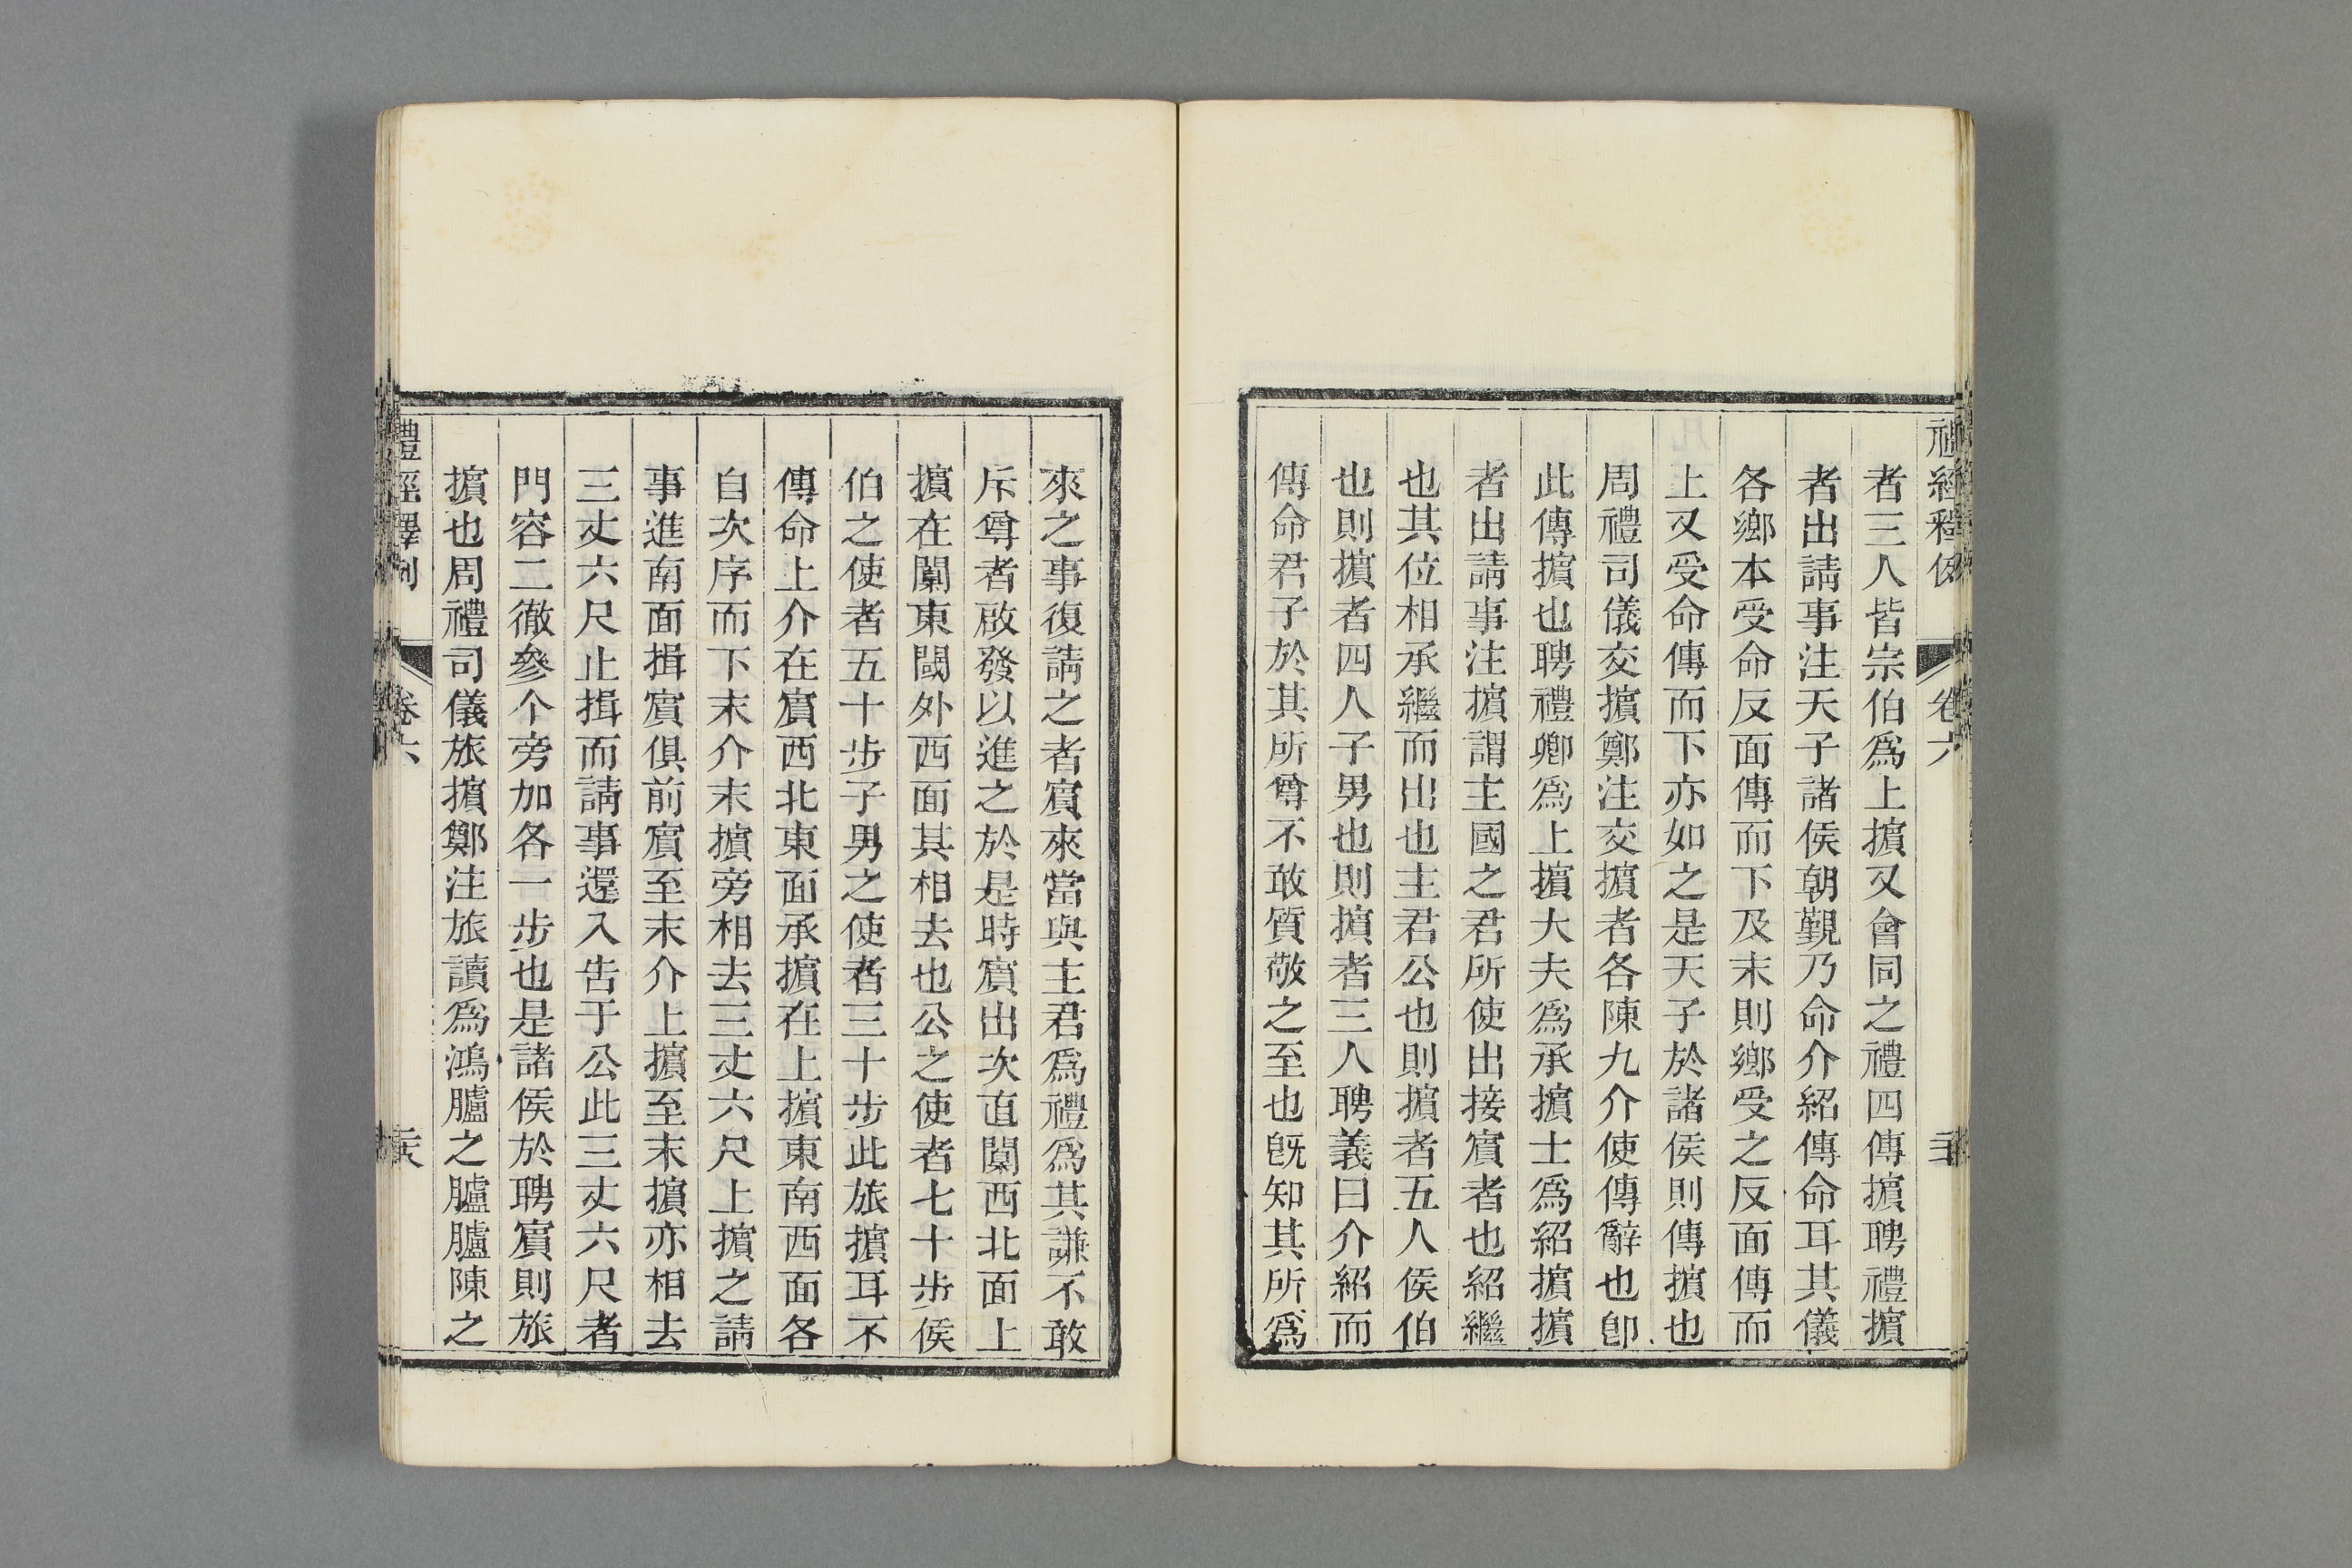 者三人皆宗伯爲上擯又會同之禮四傳擯聘禮擯
者出請事注天子諸侯朝覲乃命介紹傳命耳其儀
各鄉本受命反面傳而下及末則鄉受之反面傳而
上又受命傳而下亦如之是天子於諸侯則傳擯也
周禮司儀交擯鄭注交擯者各陳九介使傳辭也卽
此傳擯也聘禮卿爲上擯大夫爲承擯士爲紹擯擯
者出請事注擯謂主國之君所使出接賓者也紹繼
也其位相承繼而出也主君公也則擯者五人侯伯
也則擯者四人子男也則擯者三人聘義曰介紹而
傳命君子於其所尊不敢質敬之至也旣知其所爲
來之事復請之者賓來當與主君爲禮爲其謙不敢
斥尊者啟發以進之於是時賓出次直闑西北面上
擯在闑東閾外西面其相去也公之使者七十步侯
伯之使者五十步子男之使者三十步此旅擯耳不
傳命上介在賓西北東面承擯在上擯東南西面各
自次序而下末介末擯旁相去三丈六尺上擯之請
事進南面揖賓俱前賓至末介上擯至末擯亦相去
三丈六尺止揖而請事還入告于公此三丈六尺者
門容二徹參个旁加各一步也是諸侯於聘賓則旅
擯也周禮司儀旅擯鄭注旅讀爲鴻臚之臚臚陳之
禮經釋例 卷六